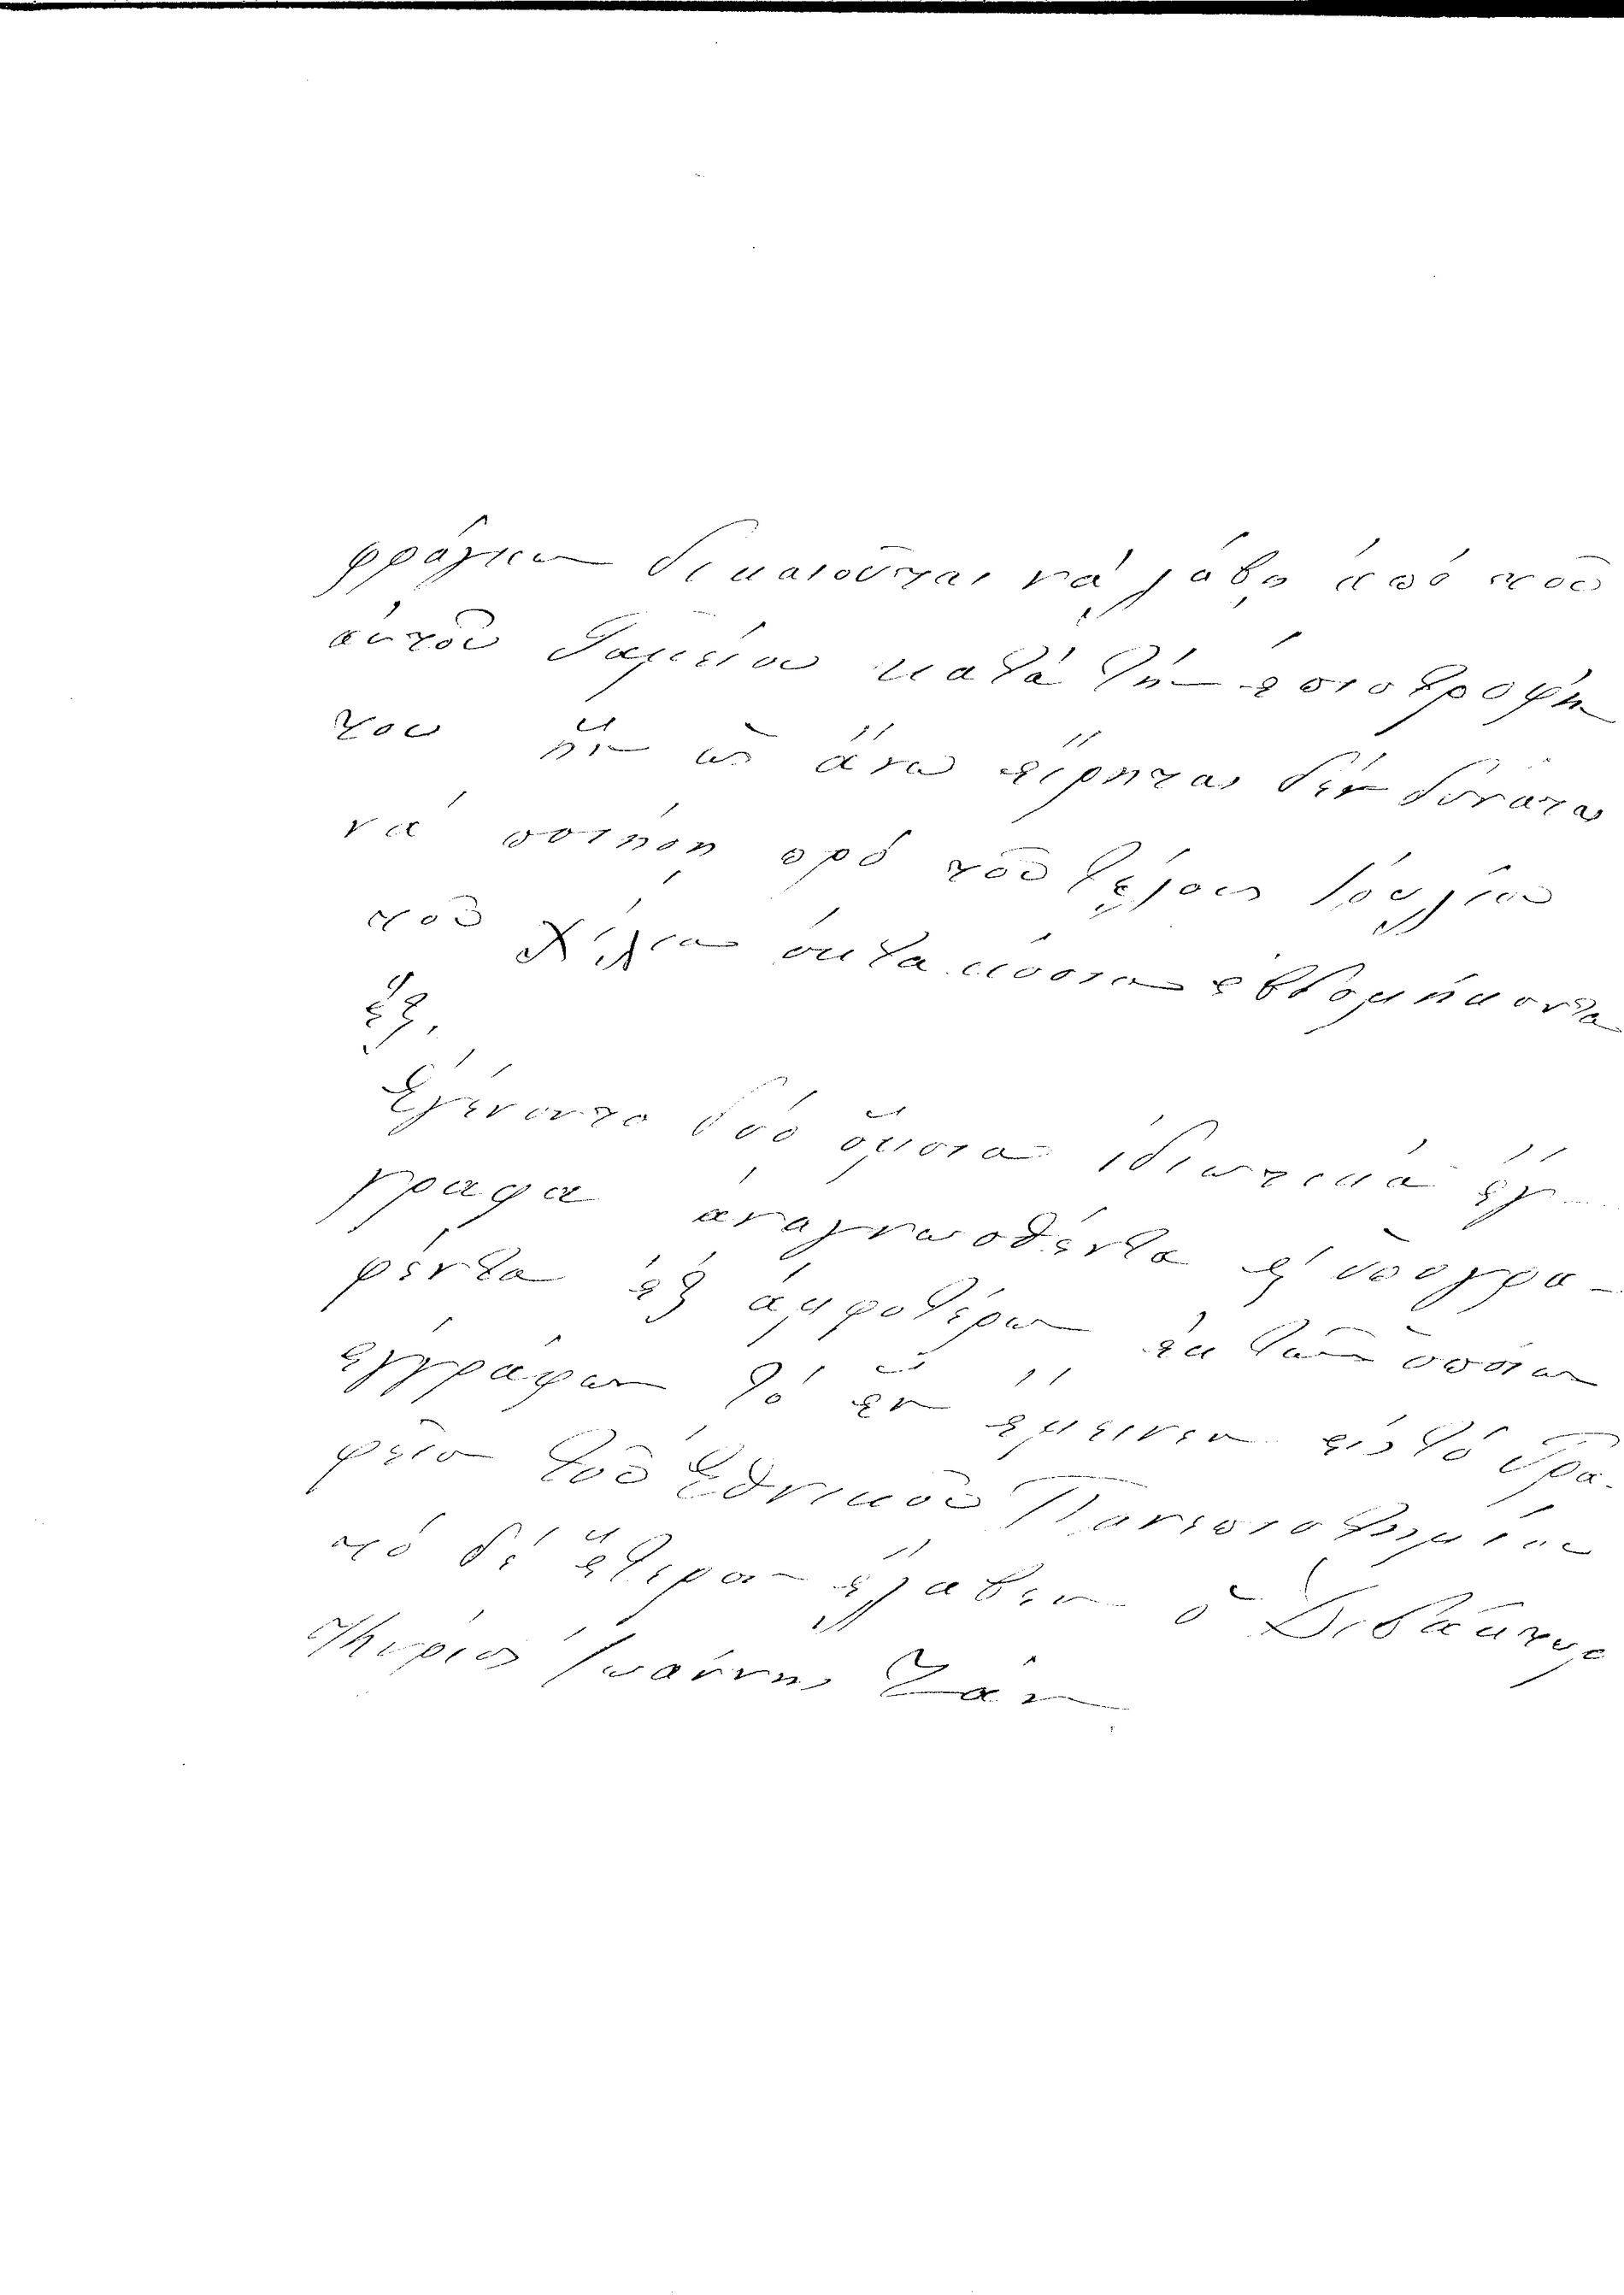 φράγκων δικαιοῦται νά λάβῃ ἀπό τοῦ
αὐτοῦ Ταμείου κατά τήν ἐπιστροφήν
του ἥν ὡς ἄνω εἴρηται δέν δύναται
νά ποιήσῃ πρό τοῦ τέλους Ἰουλίου
τοῦ Χίλια ὀκτακόσια ἑβδομήκοντα
ἕξ.
Ἐγένοντο δύο ὅμοια ἰδιωτικά ἔγ-
γραφα ἀναγνωσθέντα κ' ὑπογρα-
φέντα ἐξ ἀμφοτέρων ἐκ τῶν ὁποίων
ἐγγράφων τό ἕν ἔμεινεν εἰς τό Γρα-
φεῖον τοῦ Ἐθνικοῦ Πανεπιστημίου
τό δέ ἕτερον ἔλαβεν ὁ Διδάκτωρ
Κύριος Ἰωάννης Ζάν